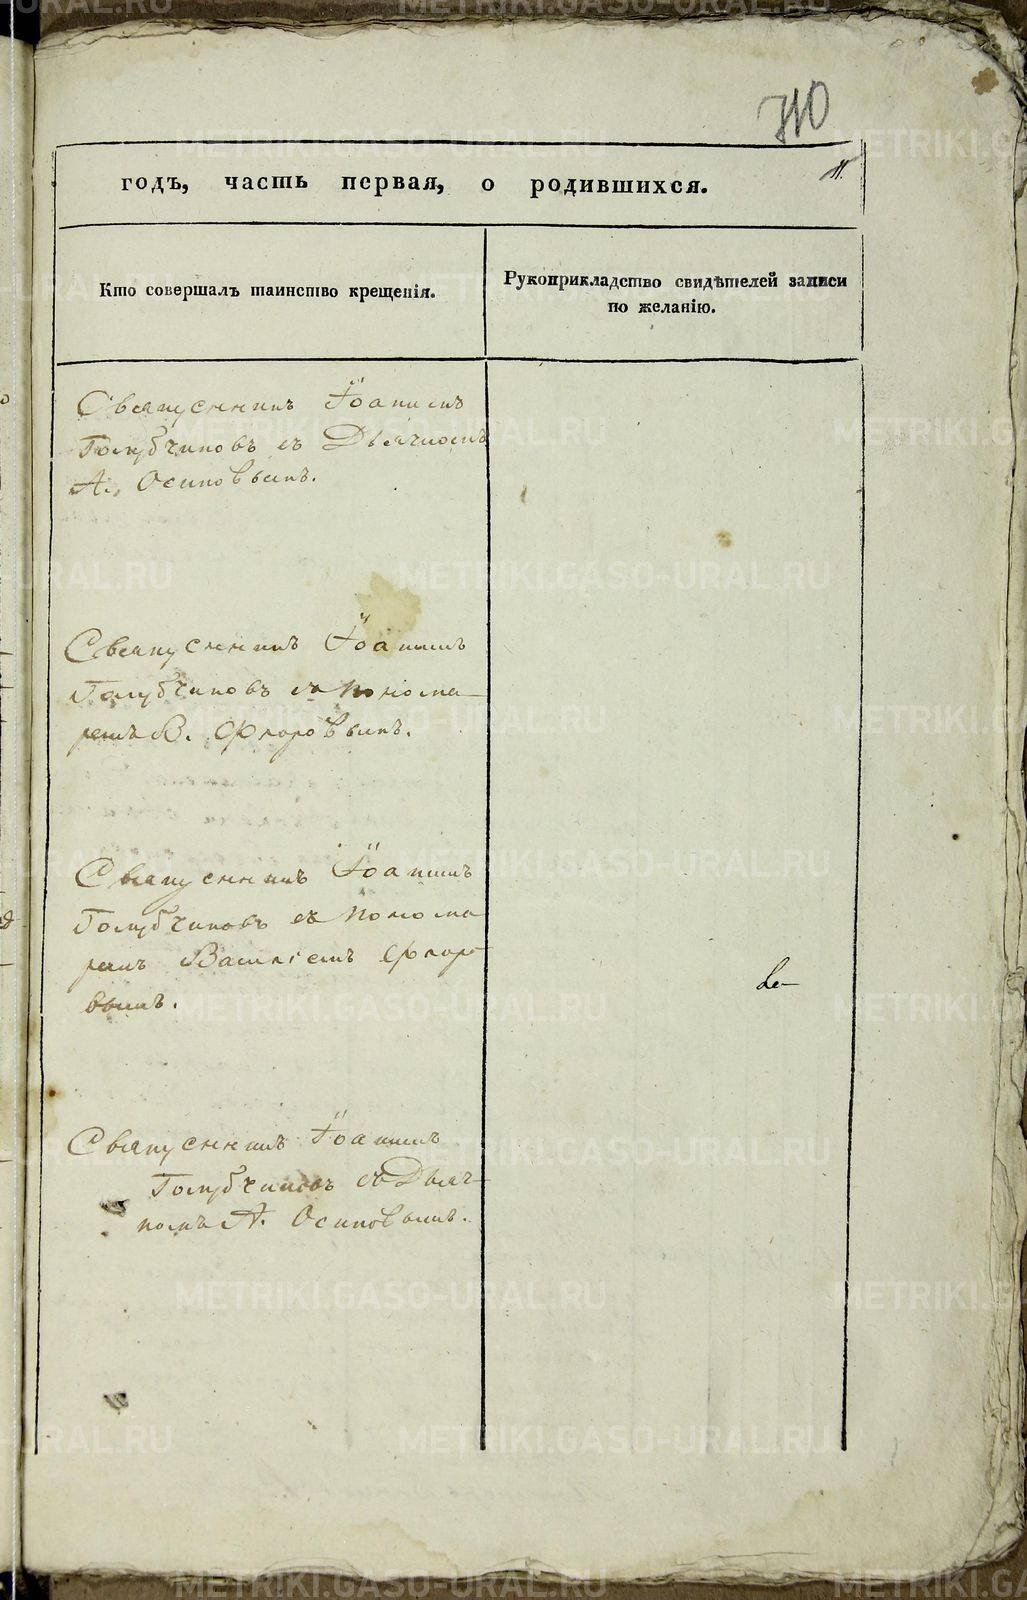 710
11.
годъ, часть первая, о родившихся.
Кто совершалъ таинство крещенія.
Рукоприкладство свидѣтелей записи
по желанію.
Священникъ Іоаннъ
Голубчиковъ съ Дьячкомъ
А. Осиповымъ.
Священникъ Іоаннъ
Голубчиковъ съ понома-
ремъ В. Флоровымъ.
Священникъ Іоаннъ
Голубчиковъ съ понома
ремъ Василіемъ Флоро
вымъ.
Священникъ Іоаннъ
Голубчиковъ съ Дьяч-
комъ А. Осиповымъ.
METRIKI.GASO-URAL.RU